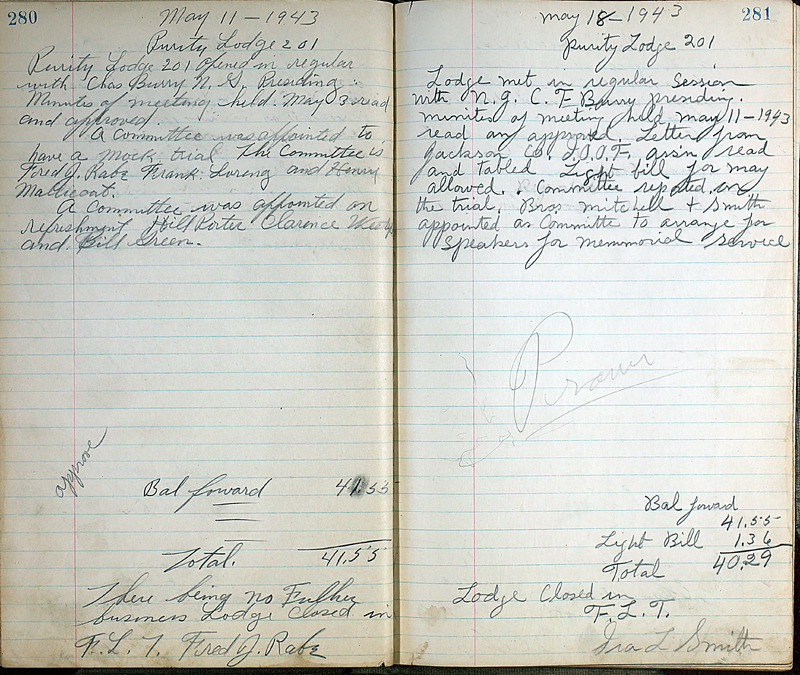 280
May 11 - 1943
Purity Lodge 201
Purity Lodge 201 Opened in regular
with Chas Burry N. G. Presiding.
Minutes of meeting held. May 3 read
and approved.
A Committee was appointed to
have a mock trial The Committee is
Fred J. Rabe Frank Loreng and Henry
A Committee was appointed on
refreshment Porter Clarence
and Bill Green.
approve
Bal foward 41.55
Total. 41.55
There being no Futher
business Lodge Closed in
F. L. T. Fred J. Rabe
281
May 18 - 1943
Purity Lodge 201
Lodge met in regular session
with N. G. C. F Burry presiding.
minutes of meeting held May 11 - 1943
read an approved. Letter from
Jackson Co. I.O.O.F. ass'n read
and tabled Light bill for may
allowed. Committee reported on
the trial. Bros Mitchell + Smith
appointed as Committe to arrange for
Speakers for Memmorial Service
Bal foward
41.55
Light Bill 1.36
Total 40.29
Lodge Closed in
F. L. T.
Ira L Smith